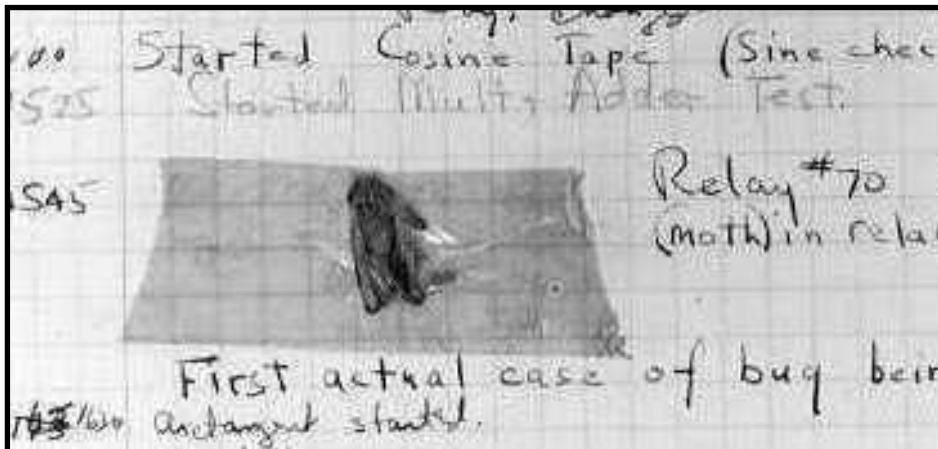 Started Cosine Tape (Sine chec
1525 Started Mult + Adder Test.
1545 Relay #70
(moth) in rela
First actual case of bug bein
1630 arctangent started.